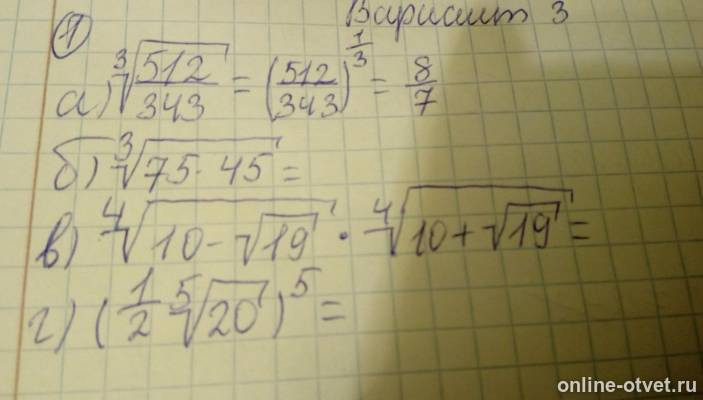 Вариант 3
① а) ∛(512/343) = (512/343)^(1/3) = 8/7
б) ∛(75 · 45) =
в) ∜(10 - √19) · ∜(10 + √19) =
г) (1/2 ⁵√20)^5 =
online-otvet.ru